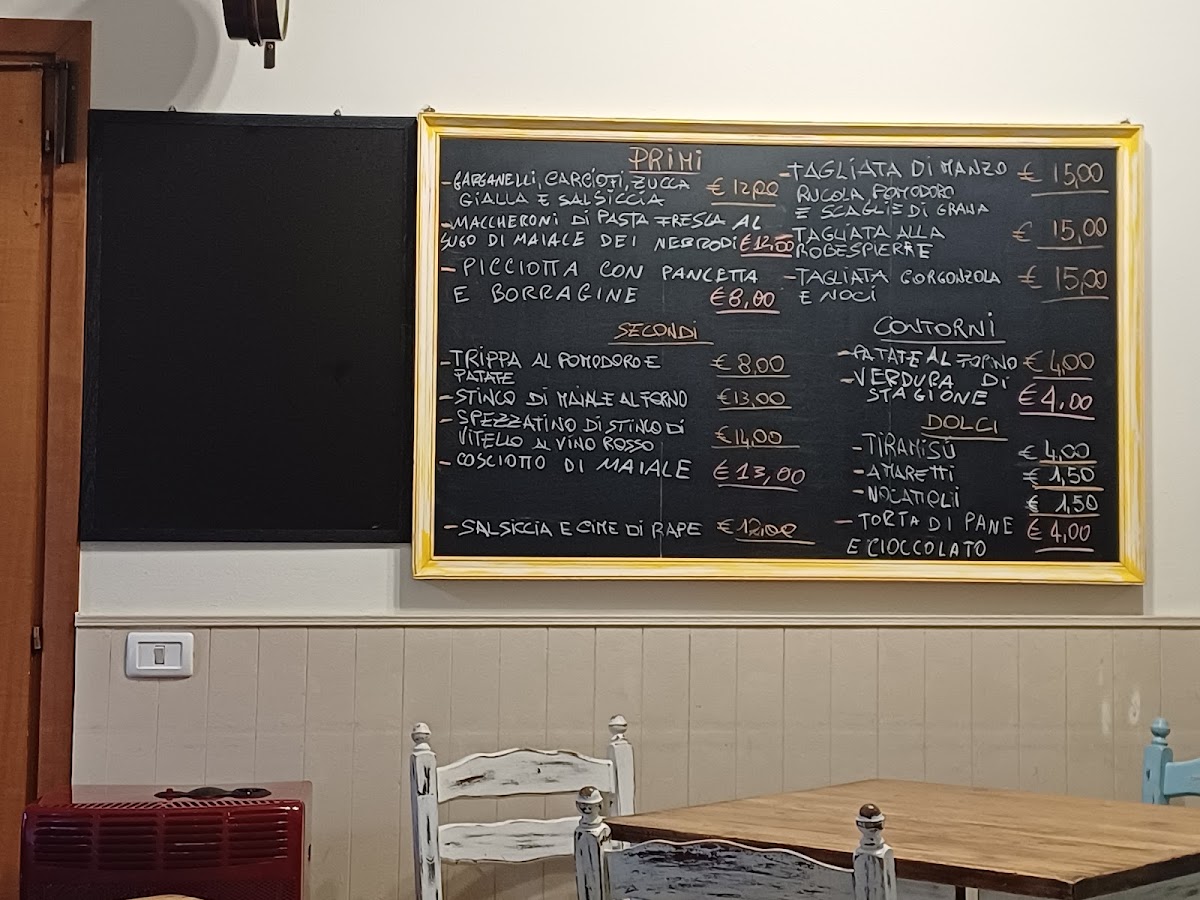 PRIMI
- GARGANELLI, CARCIOFI, ZUCCA
GIALLA E SALSICCIA € 12,00
- MACCHERONI DI PASTA FRESCA AL
SUGO DI MAIALE DEI NEBRODI € 12,00
- PICCIOTTA CON PANCETTA
E BORRAGINE € 8,00
SECONDI
- TRIPPA AL POMODORO E € 8,00
PATATE
- STINCO DI MAIALE AL FORNO € 13,00
- SPEZZATINO DI STINCO DI
VITELLO AL VINO ROSSO € 14,00
- COSCIOTTO DI MAIALE € 13,00
- SALSICCIA E CIME DI RAPE € 12,00
- TAGLIATA DI MANZO € 15,00
RUCOLA POMODORO
E SCAGLIE DI GRANA
- TAGLIATA ALLA € 15,00
ROBESPIERRE
- TAGLIATA GORGONZOLA € 15,00
E NOCI
CONTORNI
- PATATE AL FORNO € 4,00
- VERDURA DI
STAGIONE € 4,00
DOLCI
- TIRAMISÚ € 4,00
- AMARETTI € 1,50
- NOCATOLII € 1,50
- TORTA DI PANE € 4,00
E CIOCCOLATO